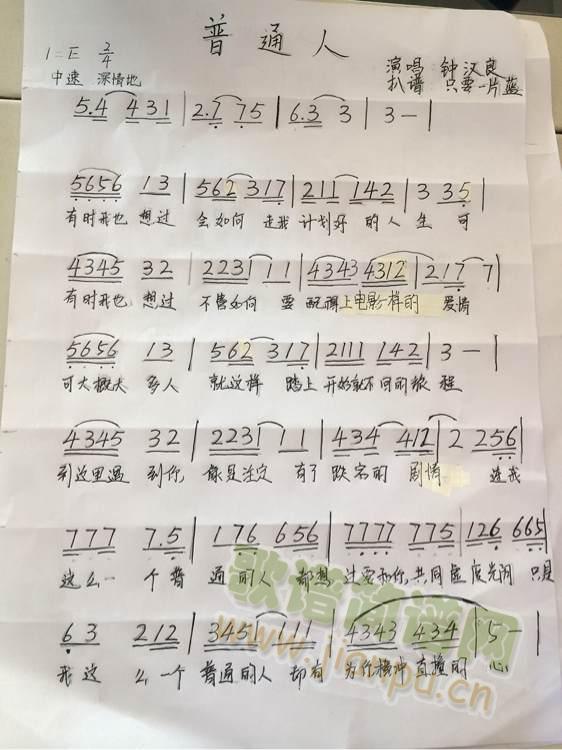 普通人
1=E 2/4
演唱：钟汉良
中速 深情地
扒谱 只要一片蓝
5.4 431 | 2.7 75 | 6.3 3 | 3 — |
5656 13 | 562 317 | 211 142 | 3 35 |
有时我也 想过 会如何 走我 计划好 的人 生 可
4345 32 | 2231 11 | 4343 4312 | 217 7 |
有时我也 想过 不管如何 要 配得上电影一样的 爱情
5656 13 | 562 317 | 2111 142 | 3 — |
可大概大 多人 就这样 踏上 开始就不同的旅 程
4345 32 | 2231 11 | 434 412 | 2 256 |
到这里遇 到你 像是注定 有了 跌宕的 剧情 连我
777 7.5 | 176 656 | 7777 775 | 126 665 |
这么一 个普 通的人 都想 过要和你 共同虚 度光阴 只是
6 3 212 | 345 111 | 4343 434 | 5 — |
我这 么一个 普通的人 却有 为你横冲 直撞的 心
歌谱简谱网
www.jianpu.cn